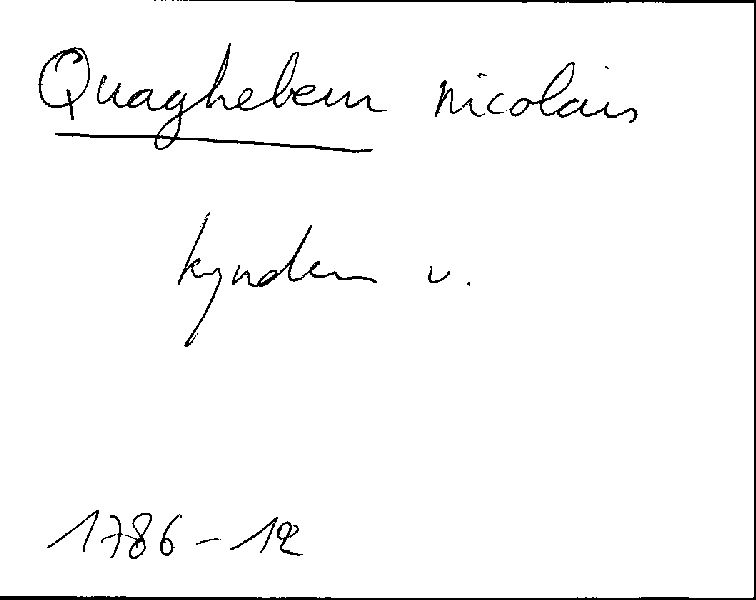 Quaghebeur nicolais
kynderen v.
1786-12